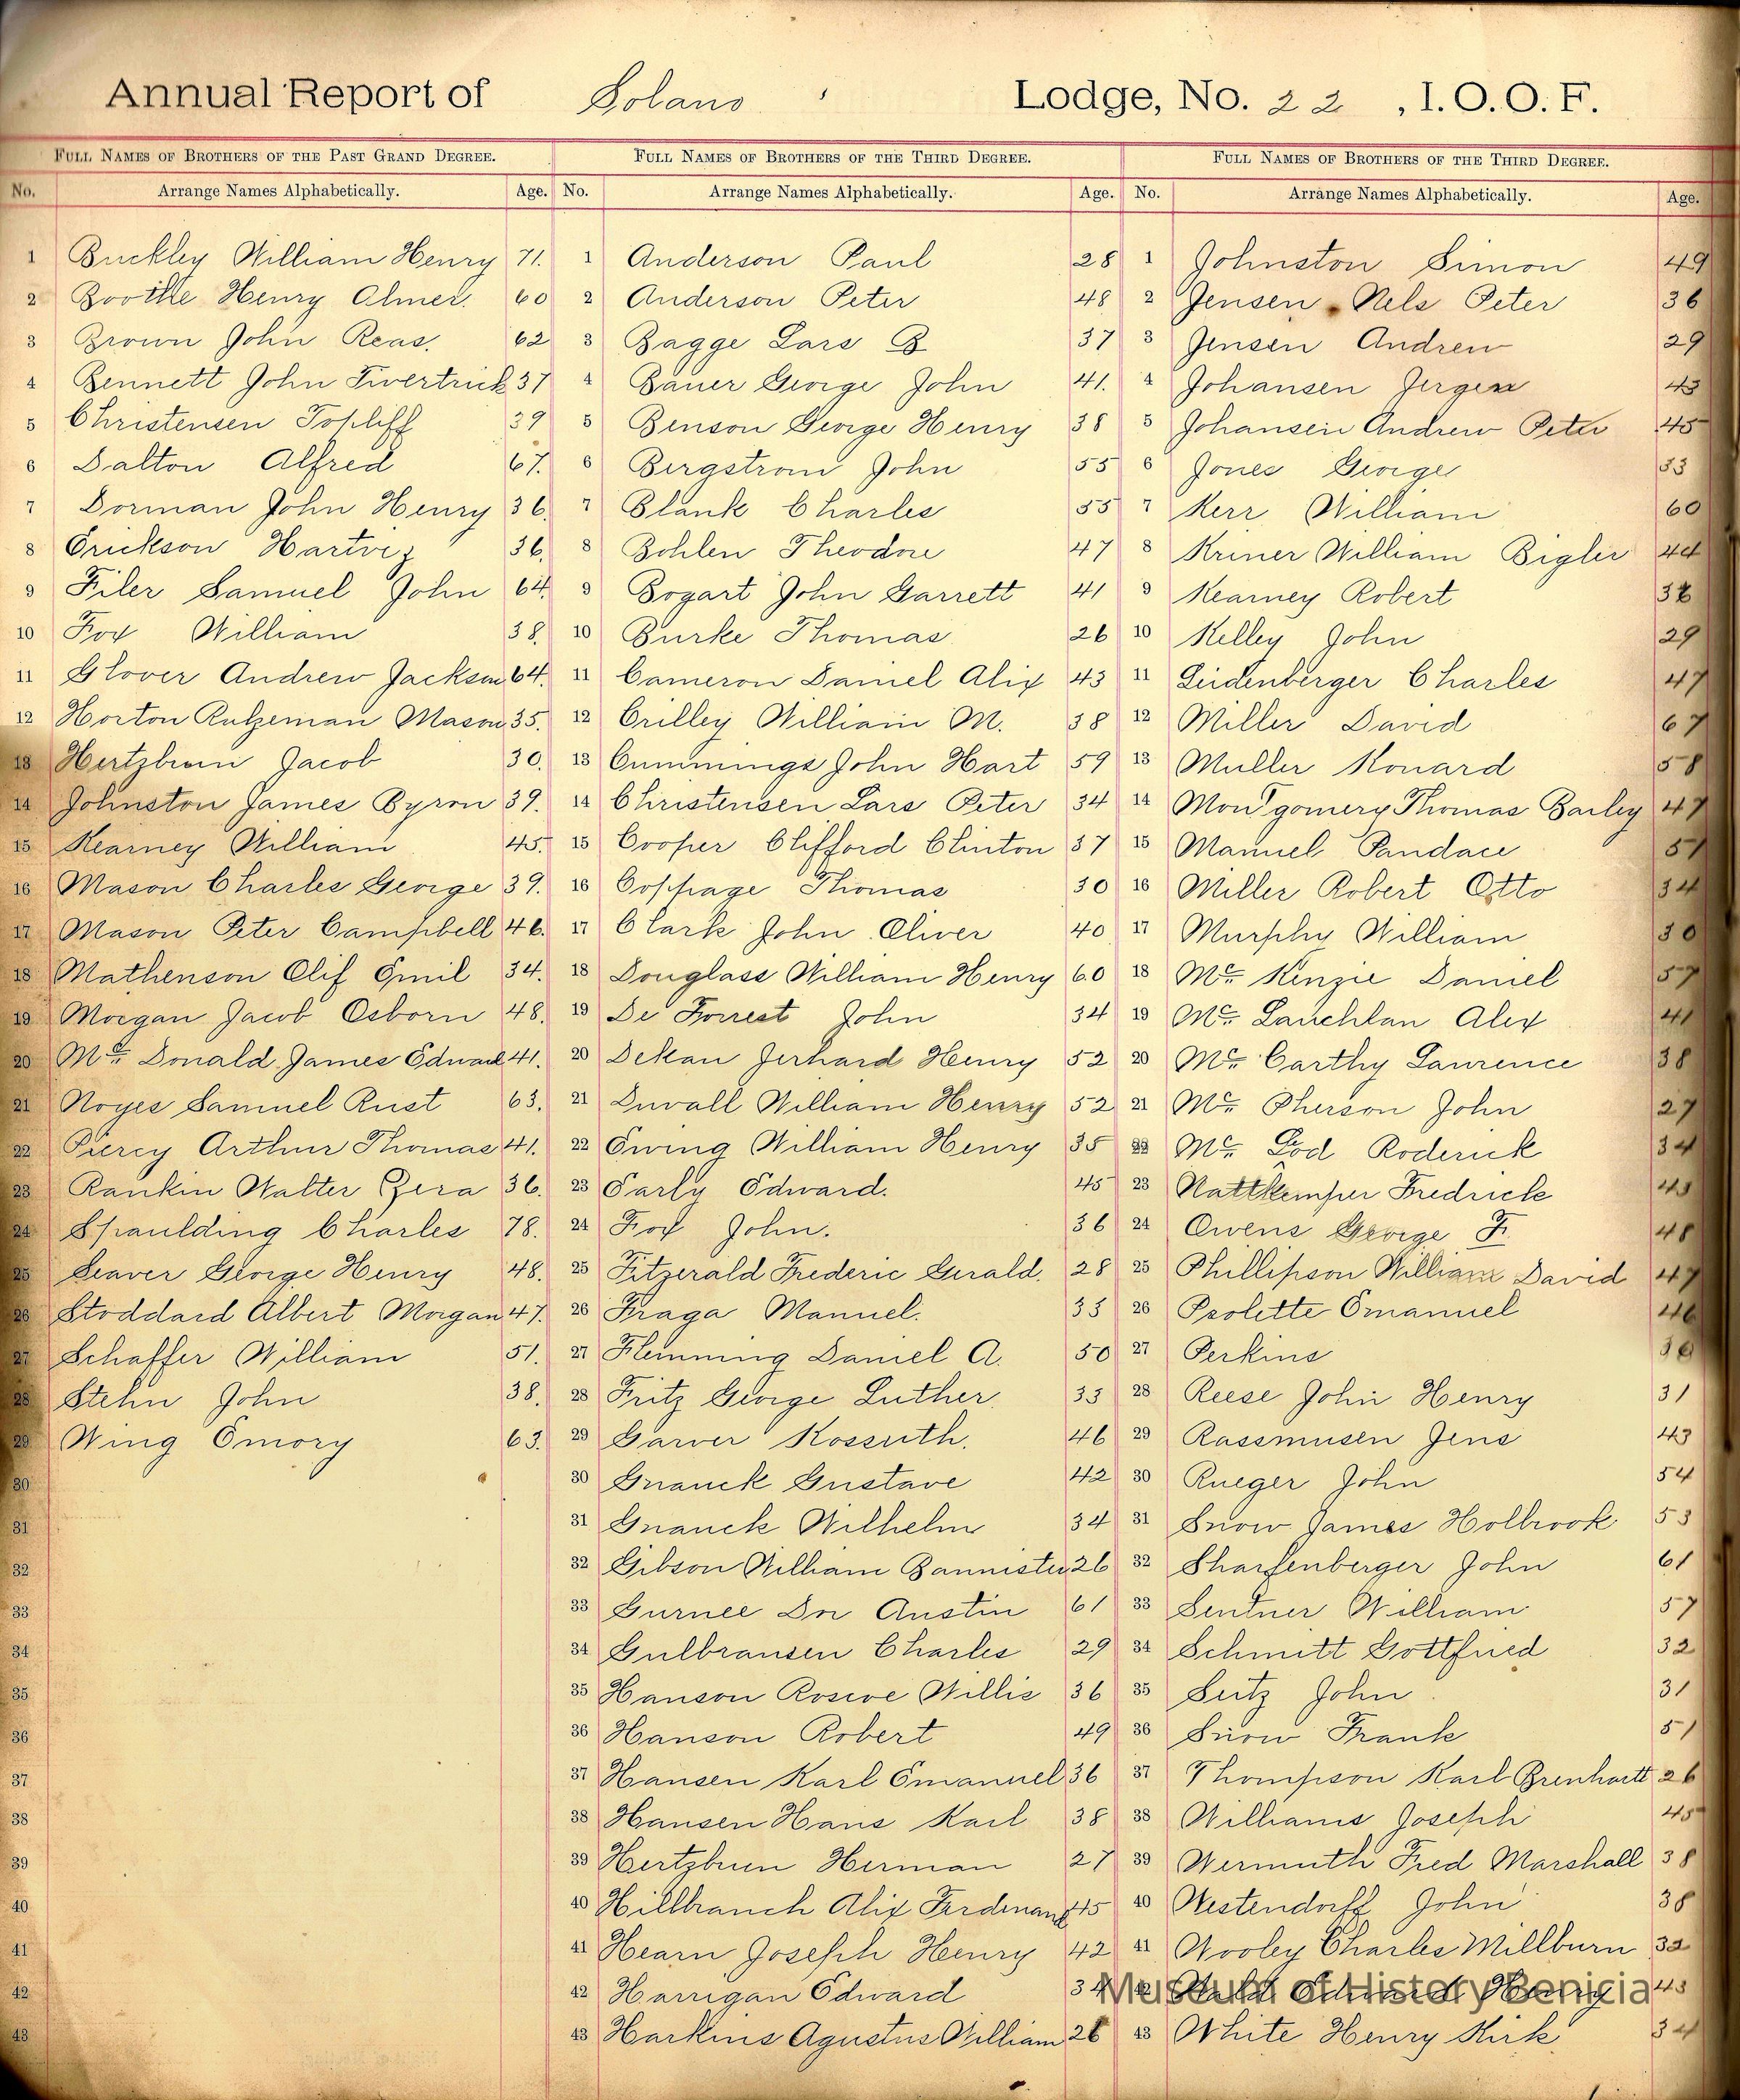 Annual Report of Solano Lodge, No. 22, I.O.O.F.
FULL NAMES OF BROTHERS OF THE PAST GRAND DEGREE.
No. Arrange Names Alphabetically. Age.
1 Buckley William Henry 71.
2 Boothe Henry Olmer. 60
3 Brown John Reas. 62
4 Bennett John 37
5 Christensen Topliff 39
6 Dalton Alfred 67.
7 Dorman John Henry 36.
8 Erickson Hartvig 36.
9 Filer Samuel John 64.
10 Fox William 38.
11 Glover Andrew Jackson 64.
12 Horton Mason 35.
13 Hertzbrun Jacob 30.
14 Johnston James Byron 39.
15 Kearney William 45.
16 Mason Charles George 39.
17 Mason Peter Campbell 46.
18 Mathenson Olif Emil 34.
19 Morgan Jacob Osborn 48.
20 Mc Donald James Edward 41.
21 Noyes Samuel Rust 63.
22 Piercy Arthur Thomas 41.
23 Rankin Walter Gera 36.
24 Spaulding Charles 78.
25 Seaver George Henry 48.
26 Stoddard Albert Morgan 47.
27 Schaffer William 51.
28 Stehn John 38.
29 Wing Emory 63.
30
31
32
33
34
35
36
37
38
39
40
41
42
43
FULL NAMES OF BROTHERS OF THE THIRD DEGREE.
No. Arrange Names Alphabetically. Age.
1 Anderson Paul 28
2 Anderson Peter 48
3 Bagge Lars B 37
4 Bauer George John 41.
5 Benson George Henry 38
6 Bergstrom John 55
7 Blank Charles 55
8 Bohlen Theodore 47
9 Bogart John Garrett 41
10 Burke Thomas 26
11 Cameron Daniel Alix 43
12 Crilley William M. 38
13 Cummings John Hart 59
14 Christensen Lars Peter 34
15 Cooper Clifford Clinton 37
16 Coppage Thomas 30
17 Clark John Oliver 40
18 Douglass William Henry 60
19 De Forrest John 34
20 DeKan Jerhard Henry 52
21 Duvall William Henry 52
22 Ewing William Henry 35
23 Early Edward. 45
24 Fox John. 36
25 Fitzerald Frederic Gerald. 28
26 Fraga Manuel. 33
27 Flemming Daniel A. 50
28 Fritz George Luther. 33
29 Garver Kossuth. 46
30 Gnauck Gustave 42
31 Gnauck Wilhelm 34
32 Gibson William Bannister 26
33 Gurnee Dor Austin 61
34 Gulbransen Charles 29
35 Hanson Roscoe Willis 36
36 Hanson Robert 49
37 Hansen Karl Emanuel 36
38 Hansen Hans Karl 38
39 Hertzbrun Herman 27
40 Hillbranch Alix Ferdinand 45
41 Hearn Joseph Henry 42
42 Harrigan Edward 34
43 Harkins Agustus William 26
FULL NAMES OF BROTHERS OF THE THIRD DEGREE.
No. Arrange Names Alphabetically. Age.
1 Johnston Simon 49
2 Jensen Nels Peter 36
3 Jensen Andrew 29
4 Johansen Jergen 43
5 Johansen Andrew Peter 45
6 Jones George 33
7 Kerr William 60
8 Kriner William Bigler 44
9 Kearney Robert
10 Kelley John 29
11 Leidenberger Charles 47
12 Miller David 67
13 Muller Konard 58
14 Montgomery Thomas Barley 47
15 Manuel Pandace 51
16 Miller Robert Otto 34
17 Murphy William 30
18 Mc Kinzie Daniel 57
19 Mc Lauchlan Alex 41
20 Mc Carthy Laurence 38
21 Mc Pherson John 27
22 Mc Lod Roderick 34
23 Nattkemper Fredrick 43
24 Owens George F. 48
25 Phillipson William David 47
26 Psolette Emanuel 46
27 Perkins
28 Reese John Henry 31
29 Rassmusen Jens 43
30 Rueger John 54
31 Snow James Holbrook 53
32 Sharfenberger John 61
33 Sentner William 57
34 Schmitt Gottfried 32
35 Seitz John 31
36 Snow Frank 51
37 Thompson Karl Brenhartt 26
38 Williams Joseph 45
39 Wermuth Fred Marshall 38
40 Westendorff John 38
41 Wooley Charles Millburn 32
42 Henry 43
43 White Henry Kirk 34
Museum of History Benicia